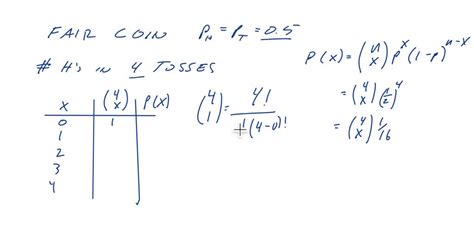 FAIR COIN P_H = P_T = 0.5
# H's IN 4 TOSSES
x (4 x) P(x)
0 1
1
2
3
4
(4 1) = 4! / 1!(4-0)!
P(x) = (n x) p^x (1-p)^{n-x}
= (4 x) (1/2)^4
= (4 x) 1/16